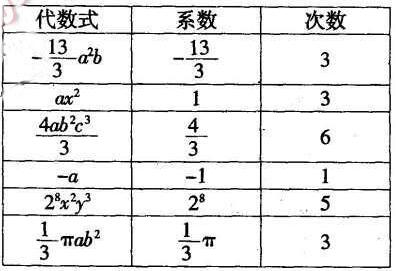 代数式 系数 次数
-\frac{13}{3}a²b -\frac{13}{3} 3
ax² 1 3
\frac{4ab²c³}{3} \frac{4}{3} 6
-a -1 1
2⁸x²y³ 2⁸ 5
\frac{1}{3}πab² \frac{1}{3}π 3